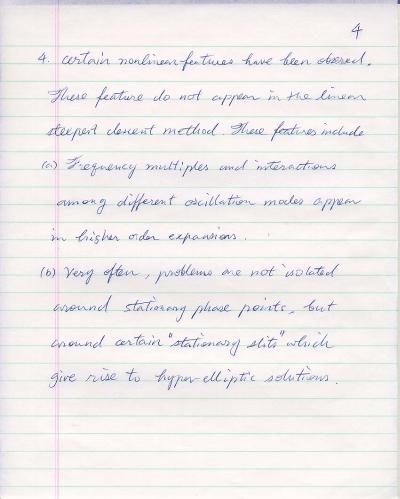 4
4. certain nonlinear features have been observed.
These feature do not appear in the linear
steepest descent method. These features include
(a) Frequency multiples and interactions
among different oscillation modes appear
in higher order expansions.
(b) Very often, problems are not isolated
around stationary phase points, but
around certain "stationary slits" which
give rise to hyper-elliptic solutions.